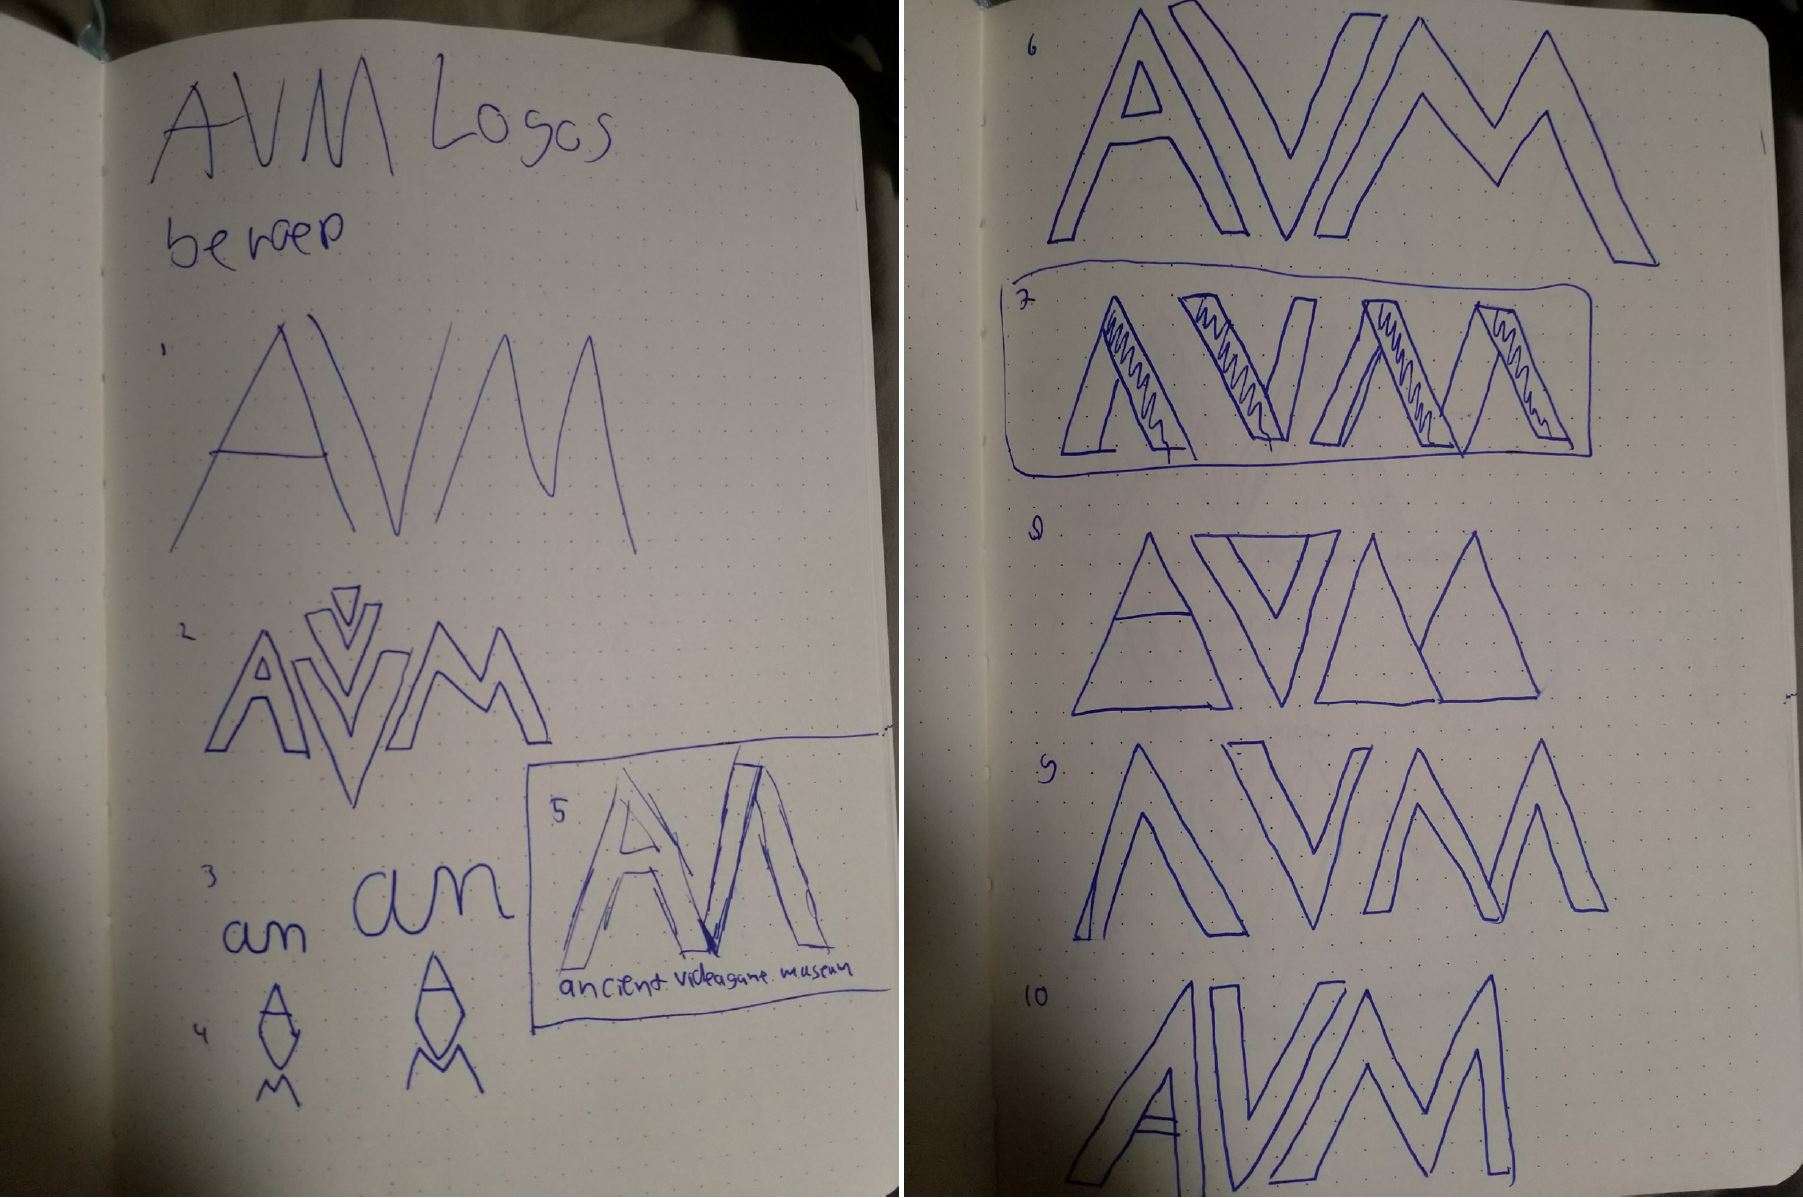 AVM Logos
beroep
1
AVM
2
AVM
3
an an
4
A
M
A
M
5
AVM
ancient videogame museum
6
AVM
7
AVM
8
AVM
9
AVM
10
AVM